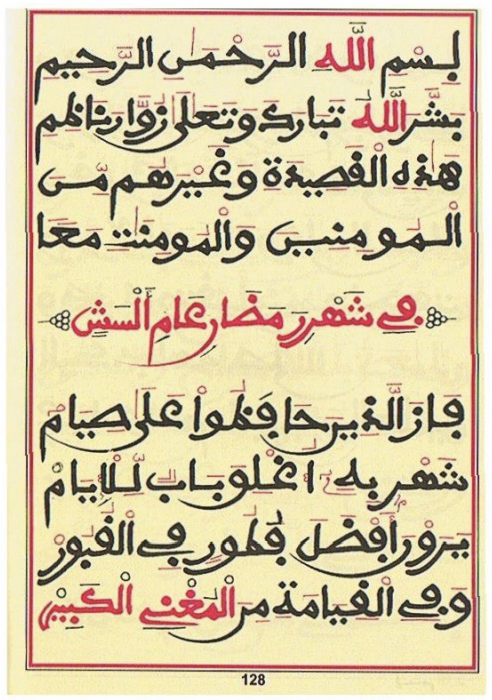 بِسْمِ اللَّهِ الرَّحْمَنِ الرَّحِيمِ
بَشَّرَ اللَّهُ تَبَارَكَ وَتَعَلَى زُوَّارَ نَاظِمِ
هَذِهِ الْقَصِيدَةِ وَغَيْرَهُم مِّنَ
الْمُومِنِينَ وَالْمُومِنَتِ مَعًا
فِي شَهْرِ رَمَضَانِ عَامِ أَلْسَشٍ
فَازَ الَّذِينَ حَافَظُوا عَلَى صِيَامِ
شَهْرٍ بِهِ اغْلِقَ بَابٌ لِلِّيَامْ
يَرَوْنَ أَفْضَلَ فُطُورٍ فِي الْقُبُورْ
وَفِي الْقِيَامَةِ مِنَ الْمُغْنِي الْكَبِيرْ
128